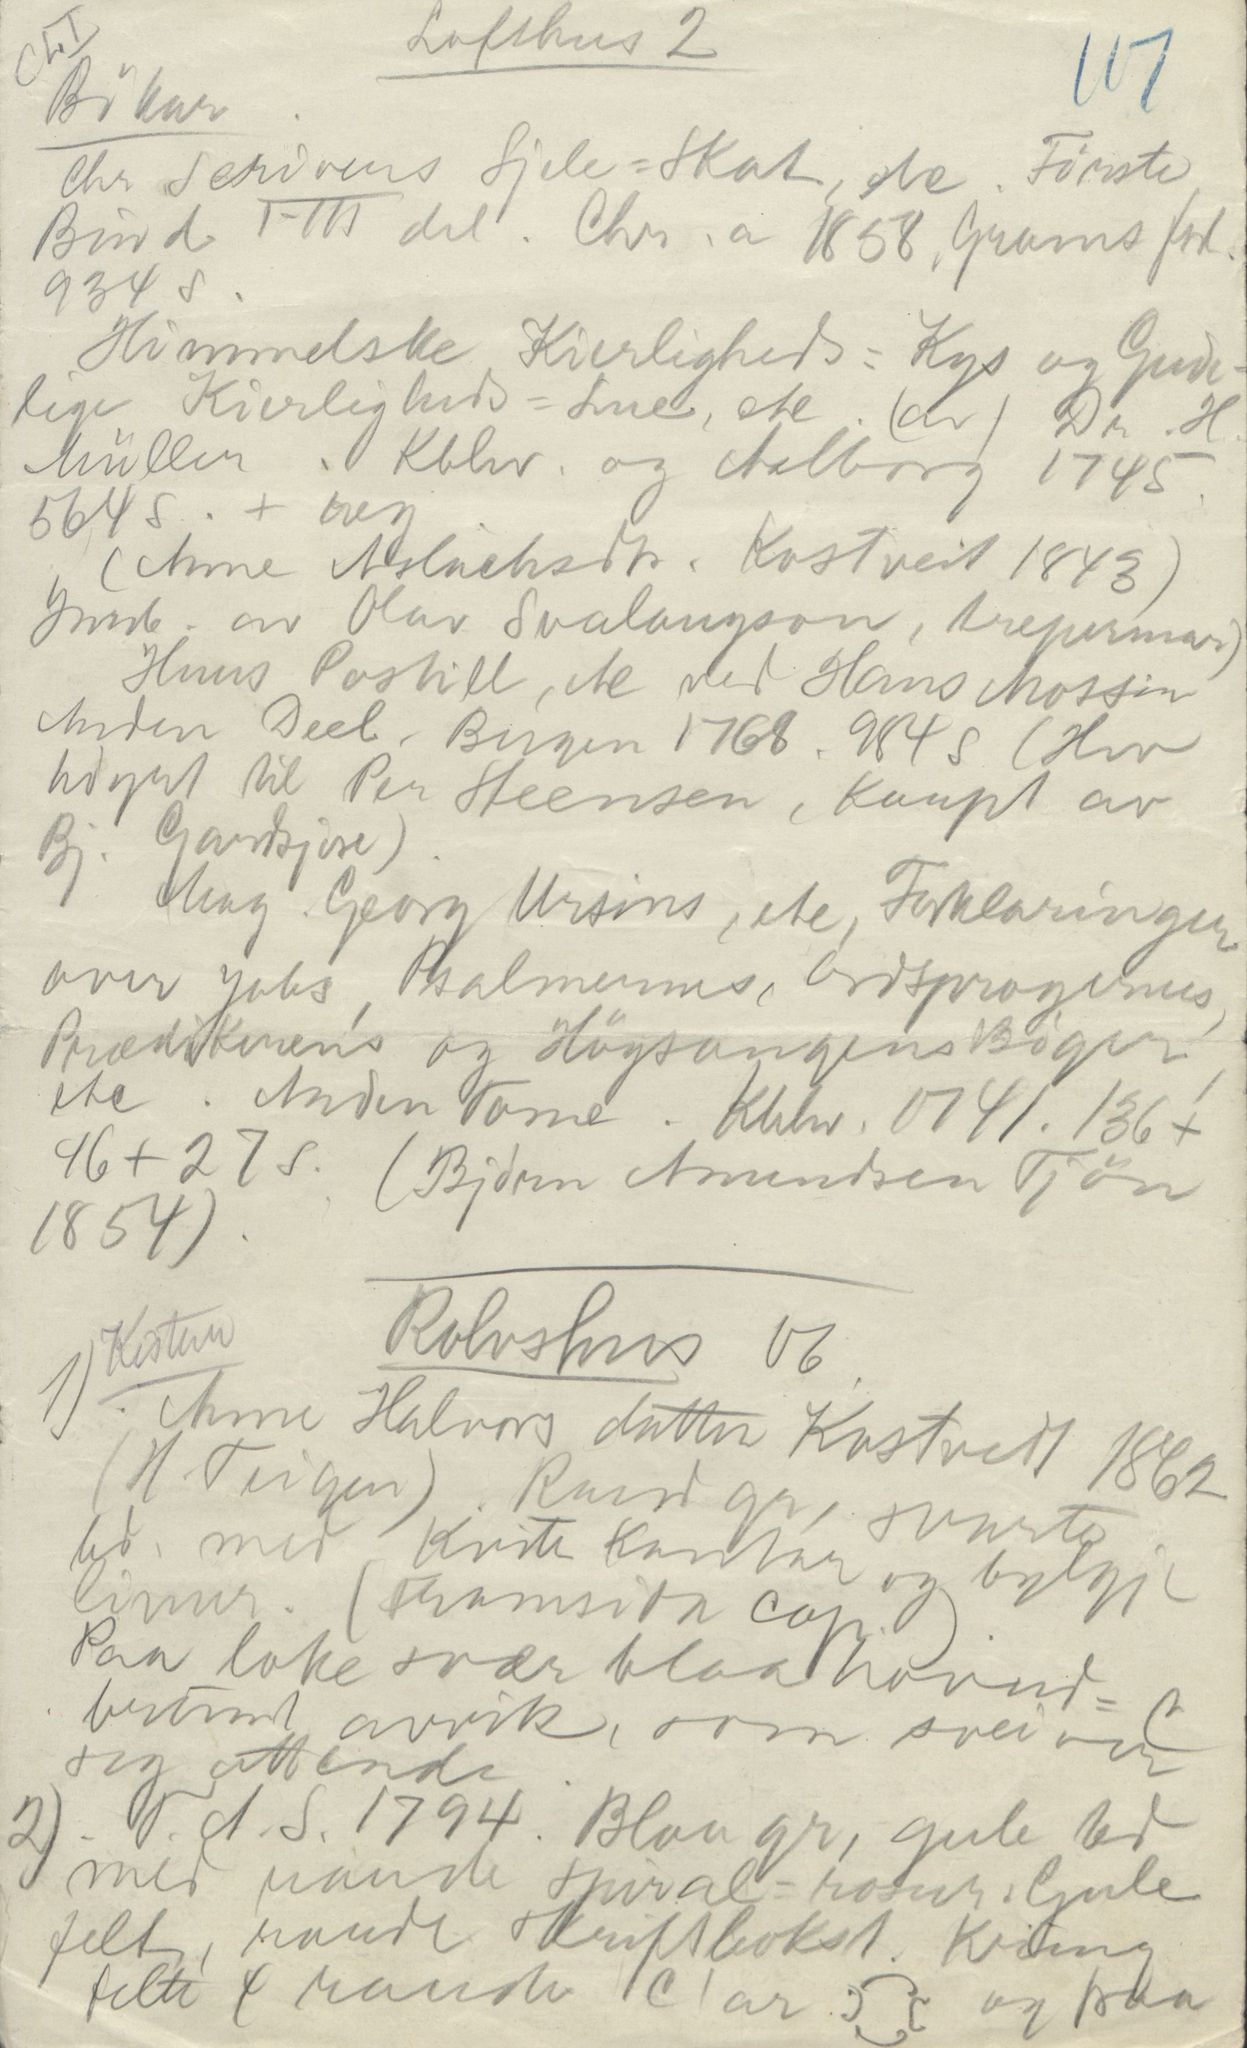 Lofthus 2
107
Bökar.
Chr Scrivers Sjele=Skat, etc. Förste
Bind I-III del. Chr.a 1858, Grams forl.
934 s.
Himmelske Kierligheds=Kys og Gude-
lige Kierligheds=Lue, etc. (av) Dr. H.
Müller. Kbhv. og Aalborg 1745.
564 s. + reg
(Anne Aslachsdtr. Kostveit 1843)
Innb. av Olav Svalaugson, trepermar)
Huus Postill, etc ved Hans Mossin
Anden Deel. Bergen 1768. 984 s (Hev
höyrt til Per Steensen, kaupt av
Bj. Gardsjore).
Mag. Georg Ursins, etc, Forklaringer
over Jobs, Psalmernes, Ordsprogenes,
Prædikerens og Höysangens Böger,
etc. Anden Tome. Kbhv. 1741. 136 +
46 + 27 s. (Björn Amundsen Tjön
1854).
Rolvshus 16.
Kistur
1). Anne Halvors datter Kostvedt 1862
(H. Teigen). Raud gr, svarte
bd. med kvite kantar og bylgje
linur. (Framsida cop.).
Paa loke svær blaa hovud=
bestemt avvik, som svei ver
seg attende.
2). T. A. S. 1794. Blaa gr, gule bd
med raude spiral=rosur. Gule
felt, raude skriftbokst. Kring
felti 4 raude C'ar og paa